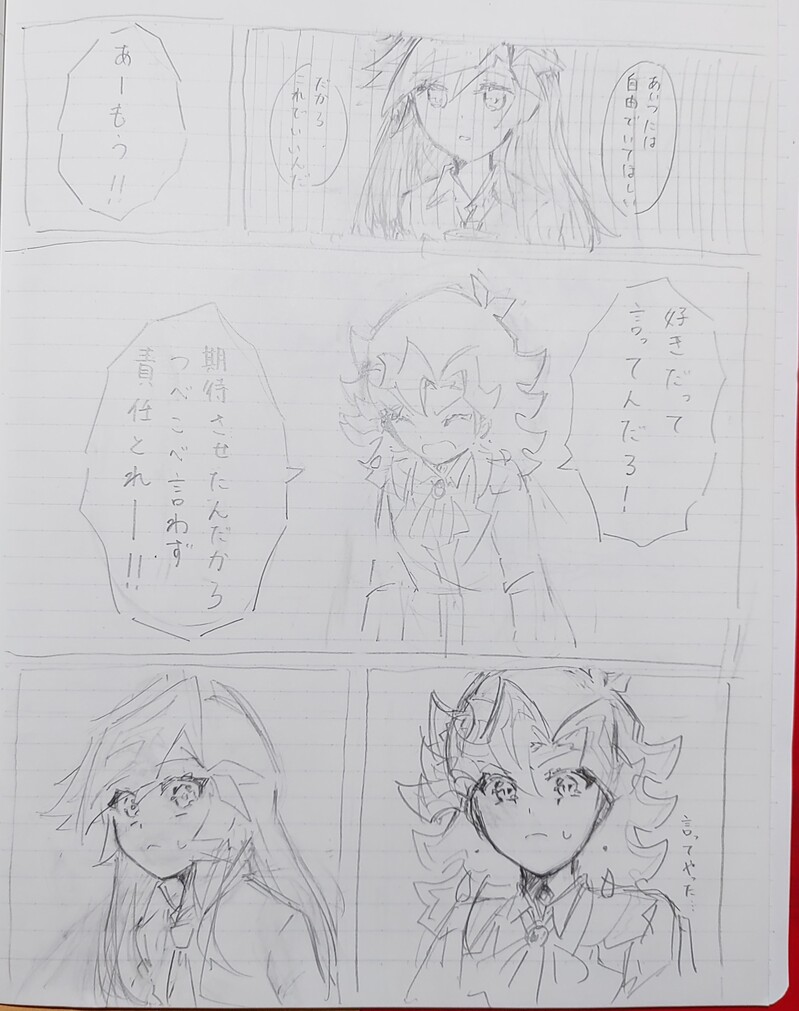 あいつには
自由でいてほしい
だから
これでいいんだ
あーもう!!
好きだって
言ってんだろ!
期待させたんだから
つべこべ言わず
責任とれー!!
言ってやった…